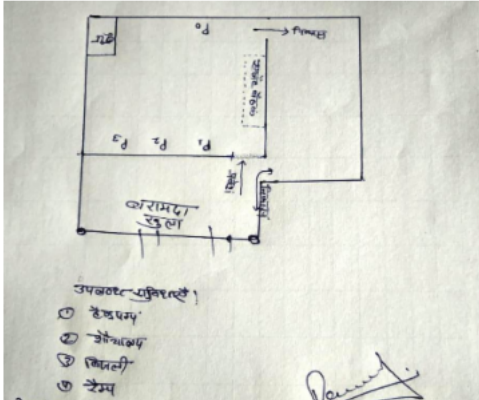 P₀
निकास
P₃ P₂ P₁
प्रवेश
निकास
बरामदा
खुला
उपलब्ध सुविधाएँ!
① हैण्डपम्प
② शौचालय
③ बिजली
④ रैम्प